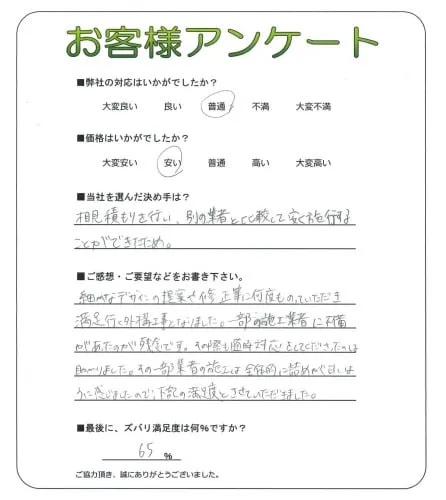 お客様アンケート
■弊社の対応はいかがでしたか?
大変良い 良い 普通 不満 大変不満
■価格はいかがでしたか?
大変安い 安い 普通 高い 大変高い
■当社を選んだ決め手は?
相見積もりを行い、別の業者と比較して安く施行する
ことができたため。
■ご感想・ご要望などをお書き下さい。
細かなデザインの提案や修正等に何度ものっていただき
満足行く外構工事となりました。一部の施工業者に不備
があったのが残念です。その際も随時対応をしてくださったのは
助かりました。その一部業者の施工は全体的に詰めが甘いよ
うに感じましたので、下記の満足度とさせていただきました。
■最後に、ズバリ満足度は何%ですか?
65 %
ご協力頂き、誠にありがとうございました。